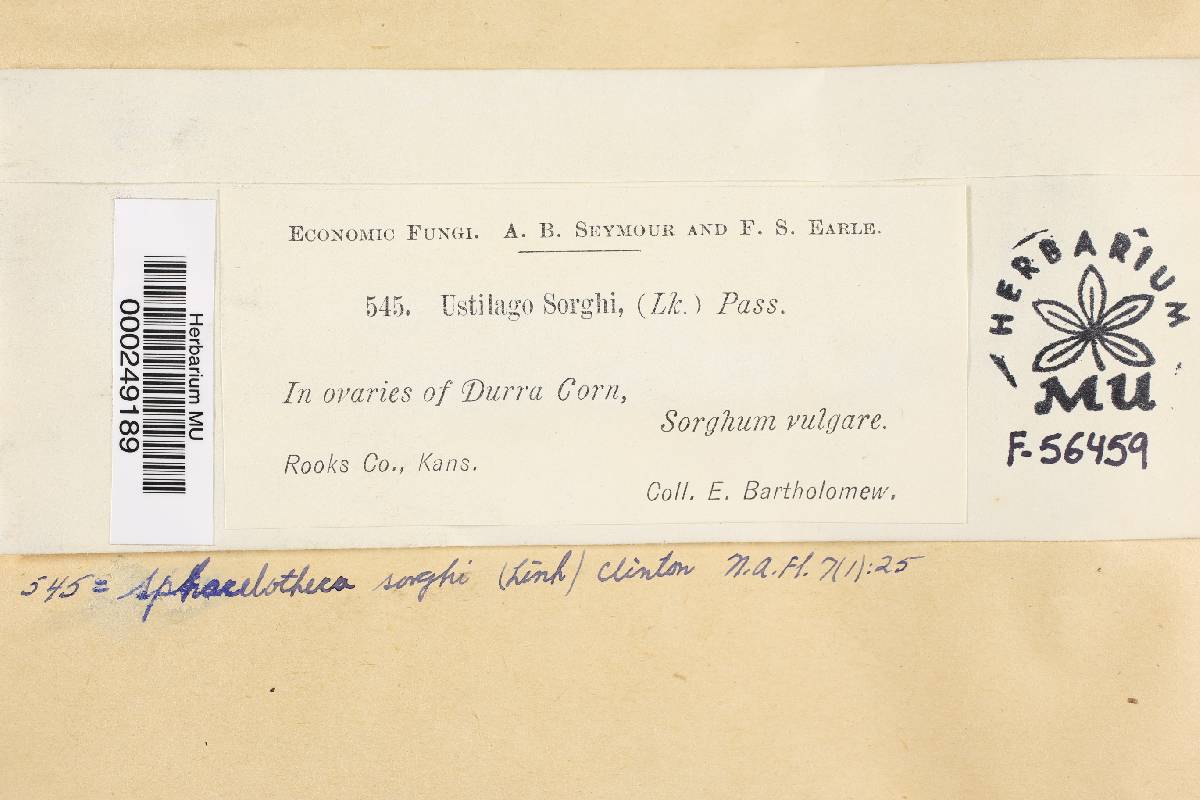 Economic Fungi. A. B. Seymour and F. S. Earle.
545. Ustilago Sorghi, (Lk.) Pass.
In ovaries of Durra Corn,
Sorghum vulgare.
Rooks Co., Kans.
Coll. E. Bartholomew.
Herbarium MU
000249189
HERBARIUM
MU
F-56459
545 = Sphacelotheca sorghi (Link) Clinton N.A.Fl. 7(1):25